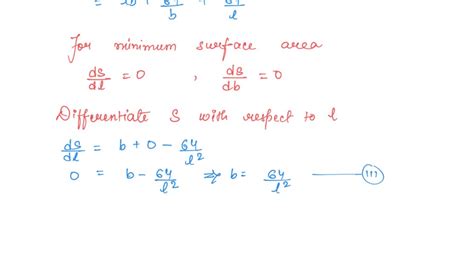 = lb + 64/b + 64/l
For minimum surface area
ds/dl = 0 , ds/db = 0
Differentiate S with respect to l
ds/dl = b + 0 - 64/l²
0 = b - 64/l² ⇒ b = 64/l² —— (III)